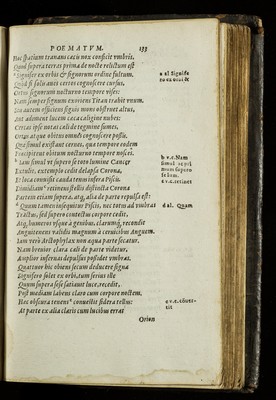 POEMATVM. 155
Hoc spatium transans cæcis nox conficit vmbris.
Quod supera terras prima de nocte relictum est
Signifer ex orbis & signorum ordine fultum.
Quod si solis aues certos cognoscere cursus,
Ortus signorum nocturno tempore vises:
Nam semper signum exoriens Titan trahit vnum.
Sin autem officiens signis mons obstruet altus,
Aut adement lucem cæca caligine nubes:
Certas ipse notas cæli de tegmine sumes,
Ortus atque obitus omneis cognoscere possis.
Quæ simul existant cernes, quæ tempore eodem
Præcipitent obitum nocturno tempore nosces.
Iam simul vt supero se toto lumine Cancer
Extulit, extemplo cedit delapsa Corona,
Et loca conuisit cauda tenus infera Piscis.
Dimidiam retinens stellis distincta Corona
Partem etiam supera, atq; alia de parte repulsa est:
Quam tamen insequitur Piscis, nec totus ad vmbras
Tractus, sed supero contectus corpore cedit,
Atq; humeros vsque à genibus, clarumq; recondit
Anguitenens validis magnum à ceruicibus Anguem.
Iam verò Arctophylax non æqua parte secatur,
Nam breuior clara cæli de parte videtur,
Amplior infernas depulsus possidet vmbras.
Quatuor hic obiens secum deducere signa
Signifero solet ex orbi, tum serius ille
Quum supera sese satiauit luce, recedit,
Post mediam labens claro cum corpore noctem.
Hæc obscura tenens conuestit sidera tellus:
At parte ex alia claris cum lucibus errat
Orion
a al Signifero
ex orbis &
b v.c. Nam
d al. Quam
e v.c.